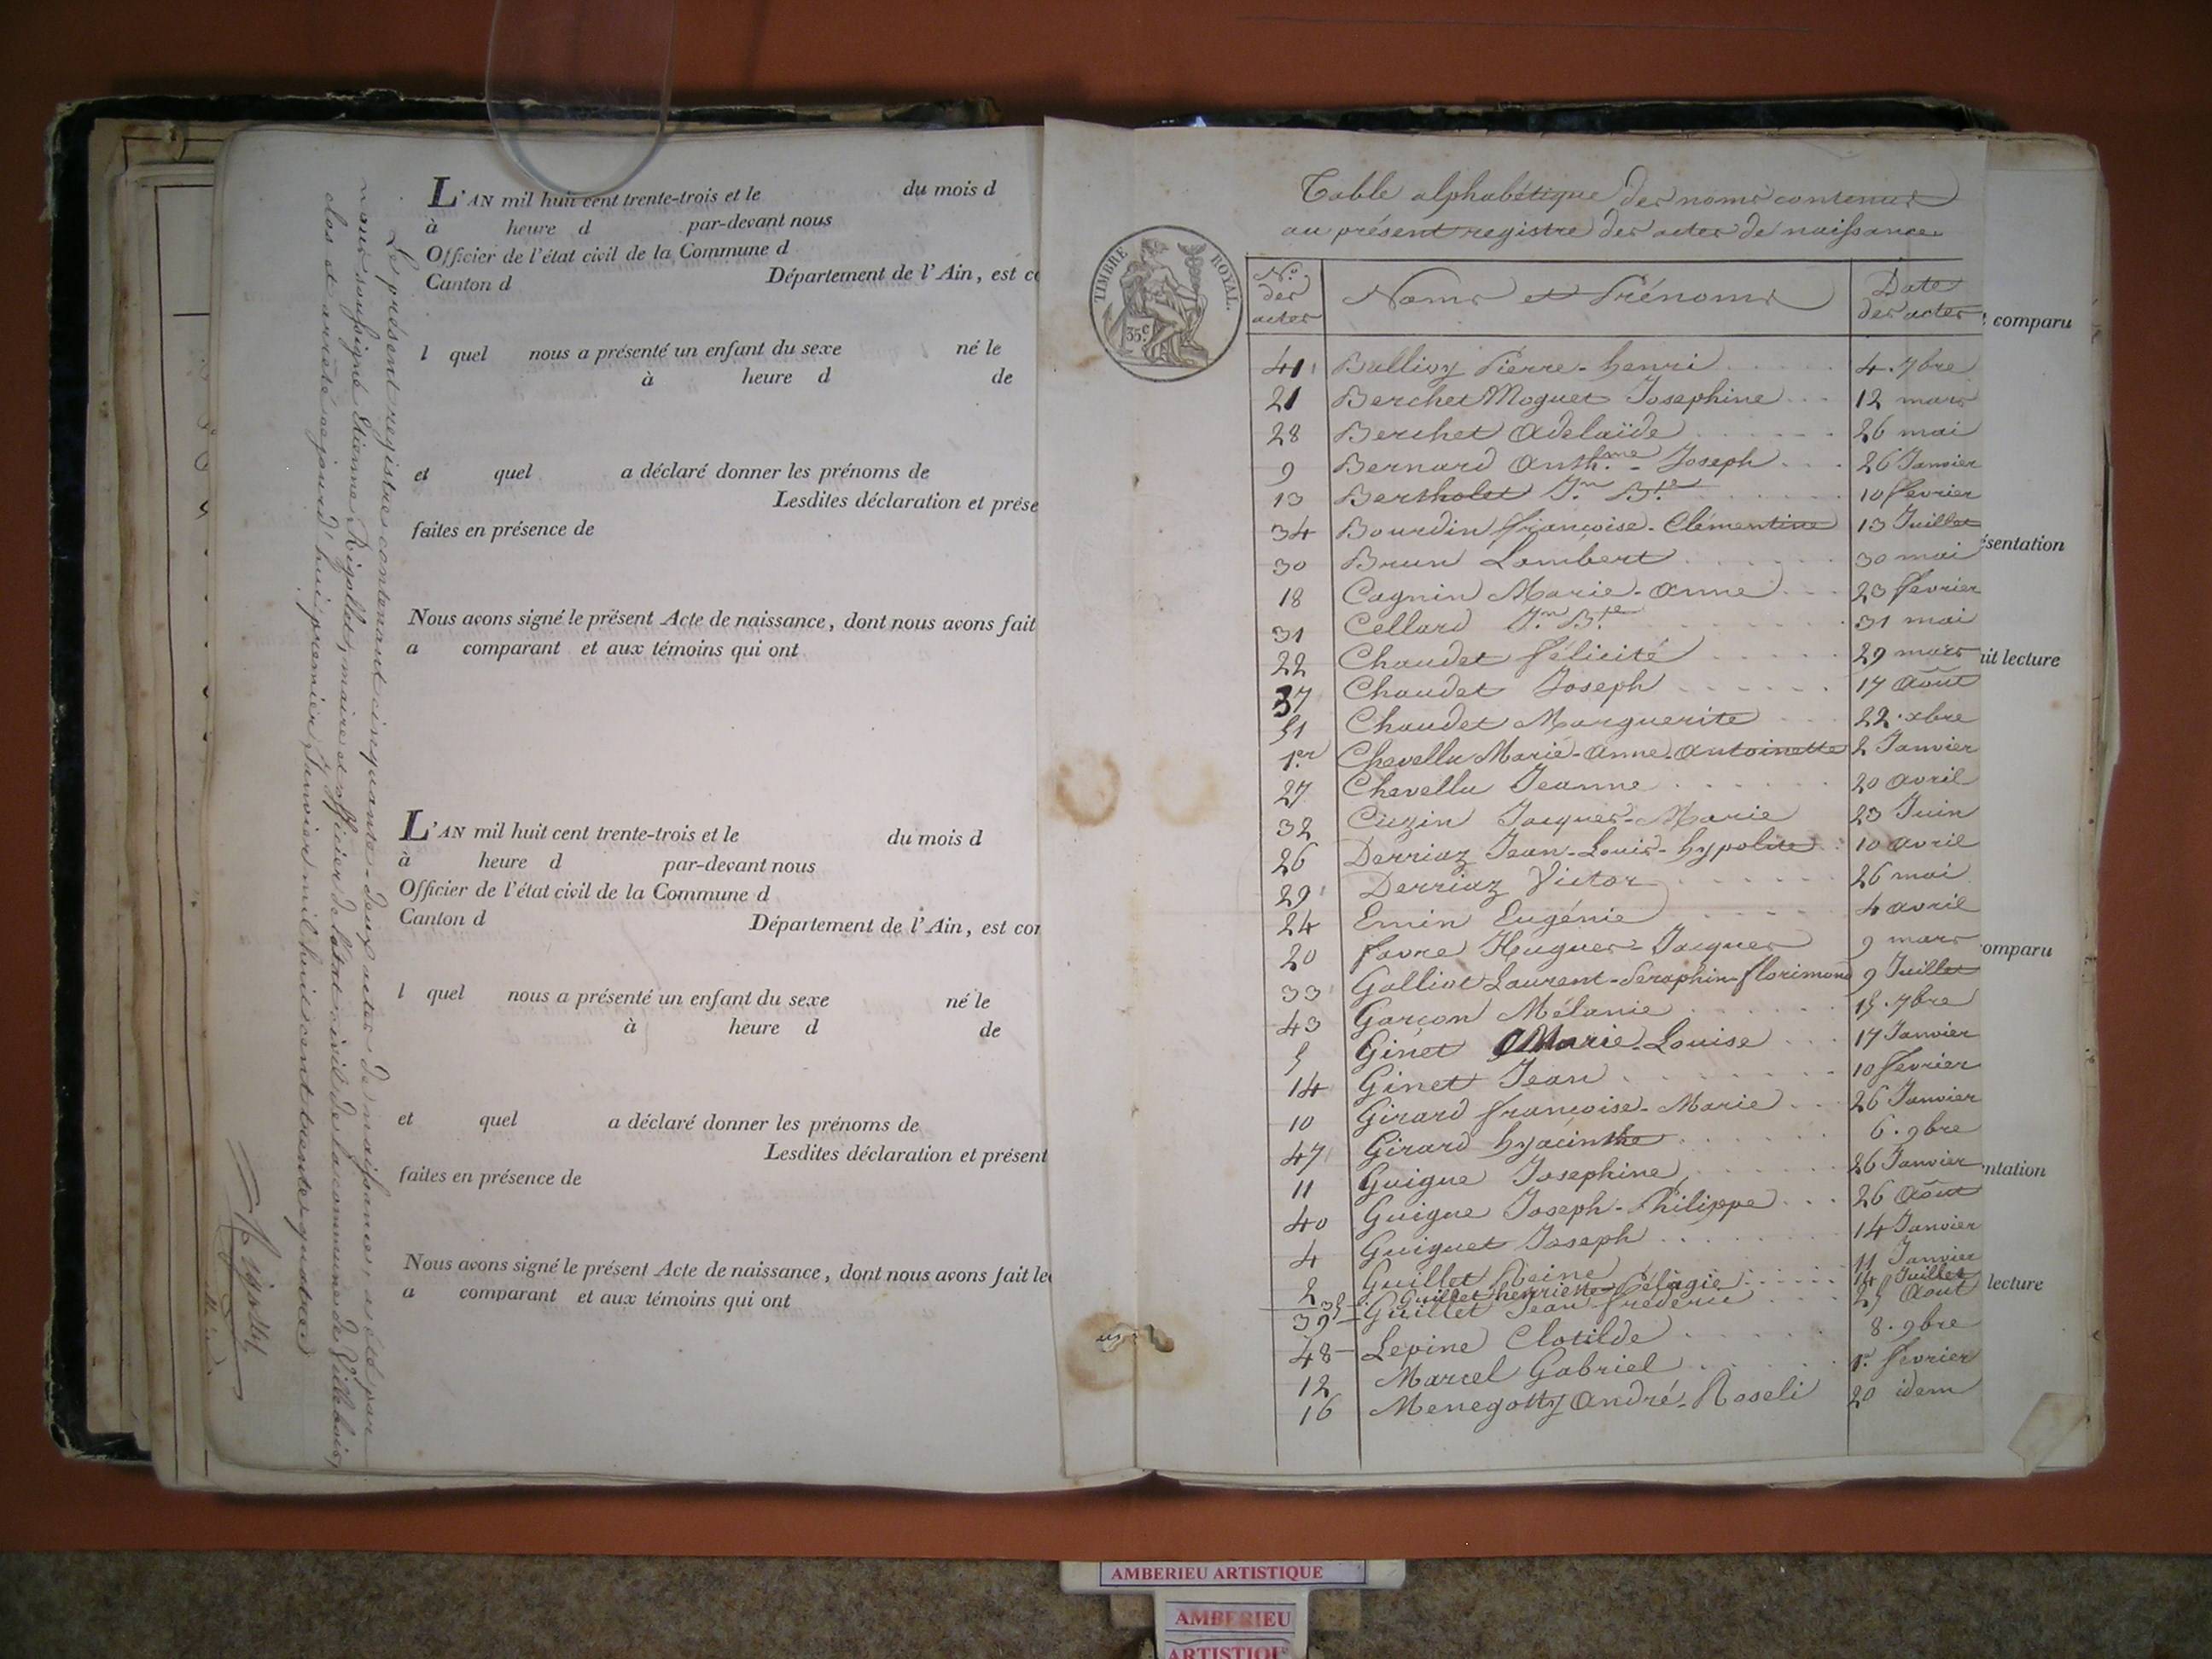 L'AN mil huit cent trente-trois et le du mois d
à heure d par-devant nous
Officier de l'état civil de la Commune d
Canton d Département de l'Ain, est co
l quel nous a présenté un enfant du sexe né le
à heure d de
et quel a déclaré donner les prénoms de
Lesdites déclaration et prése
faites en présence de
Nous avons signé le présent Acte de naissance, dont nous avons fait
a comparant et aux témoins qui ont
L'AN mil huit cent trente-trois et le du mois d
à heure d par-devant nous
Officier de l'état civil de la Commune d
Canton d Département de l'Ain, est con
l quel nous a présenté un enfant du sexe né le
à heure d de
et quel a déclaré donner les prénoms de
Lesdites déclaration et présent
faites en présence de
Nous avons signé le présent Acte de naissance, dont nous avons fait le
a comparant et aux témoins qui ont
Le présent registre contenant cinquante-deux actes de naissances, a été par
nous soussigné Etienne Rigollet, maire et officier de l'état civil de la commune de Villebois,
clos et arrêté ce jourd'hui premier Janvier mil huit cent trente quatre
Table alphabétique des noms contenus
au présent registre des actes de naissance
TIMBRE ROYAL.
35 c
N.o des actes Noms et Prénoms Date des actes
41 Ballivy Pierre-henri 4. 7bre
21 Berchet Moguet Josephine 12 mars
28 Berchet Adelaïde 26 mai
9 Bernard Anth.me - Joseph 26 Janvier
13 Bertholet J.n B.te 10 fevrier
34 Bourdin françoise-Clémentine 13 Juillet
30 Brun Lambert 30 mai
18 Cagnin Marie-anne 23 fevrier
31 Cellard J.n B.te 31 mai
22 Chaudet félicité 29 mars
37 Chaudet Joseph 17 Août
51 Chaudet Marguerite 22. xbre
1.er Chevellu Marie-Anne-Antoinette 2 Janvier
27 Chevellu Jeanne 20 avril
32 Cuzin Jacques-Marie 23 Juin
26 Derriaz Jean-Louis-hypolite 10 avril
29 Derriaz Victor 26 mai
24 Emin Eugénie 4 avril
20 favre Hugues-Jacques 9 mars
33 Galliot Laurent-Seraphin-florimond 9 Juillet
43 Garçon Mélanie 15. 7bre
5 Ginet Marie-Louise 17 Janvier
14 Ginet Jean 10 fevrier
10 Girard françoise-Marie 26 Janvier
47 Girard hyacinthe 6. 9bre
11 Guigue Josephine 26 Janvier
40 Guigue Joseph-Philippe 26 Août
4 Guiguet Joseph 14 Janvier
2 Guillet Reine 11 Janvier
35 Guillet henriette Pélagie 14 Juillet
39 Guillet Jean frédéric 25 Août
48 Lepine Clotilde 8. 9bre
12 Marcel Gabriel 1.er fevrier
16 Menegotty André-Roseli 20 idem
comparu
ésentation
ait lecture
omparu
ntation
lecture
AMBERIEU ARTISTIQUE
AMBERIEU
ARTISTIQUE